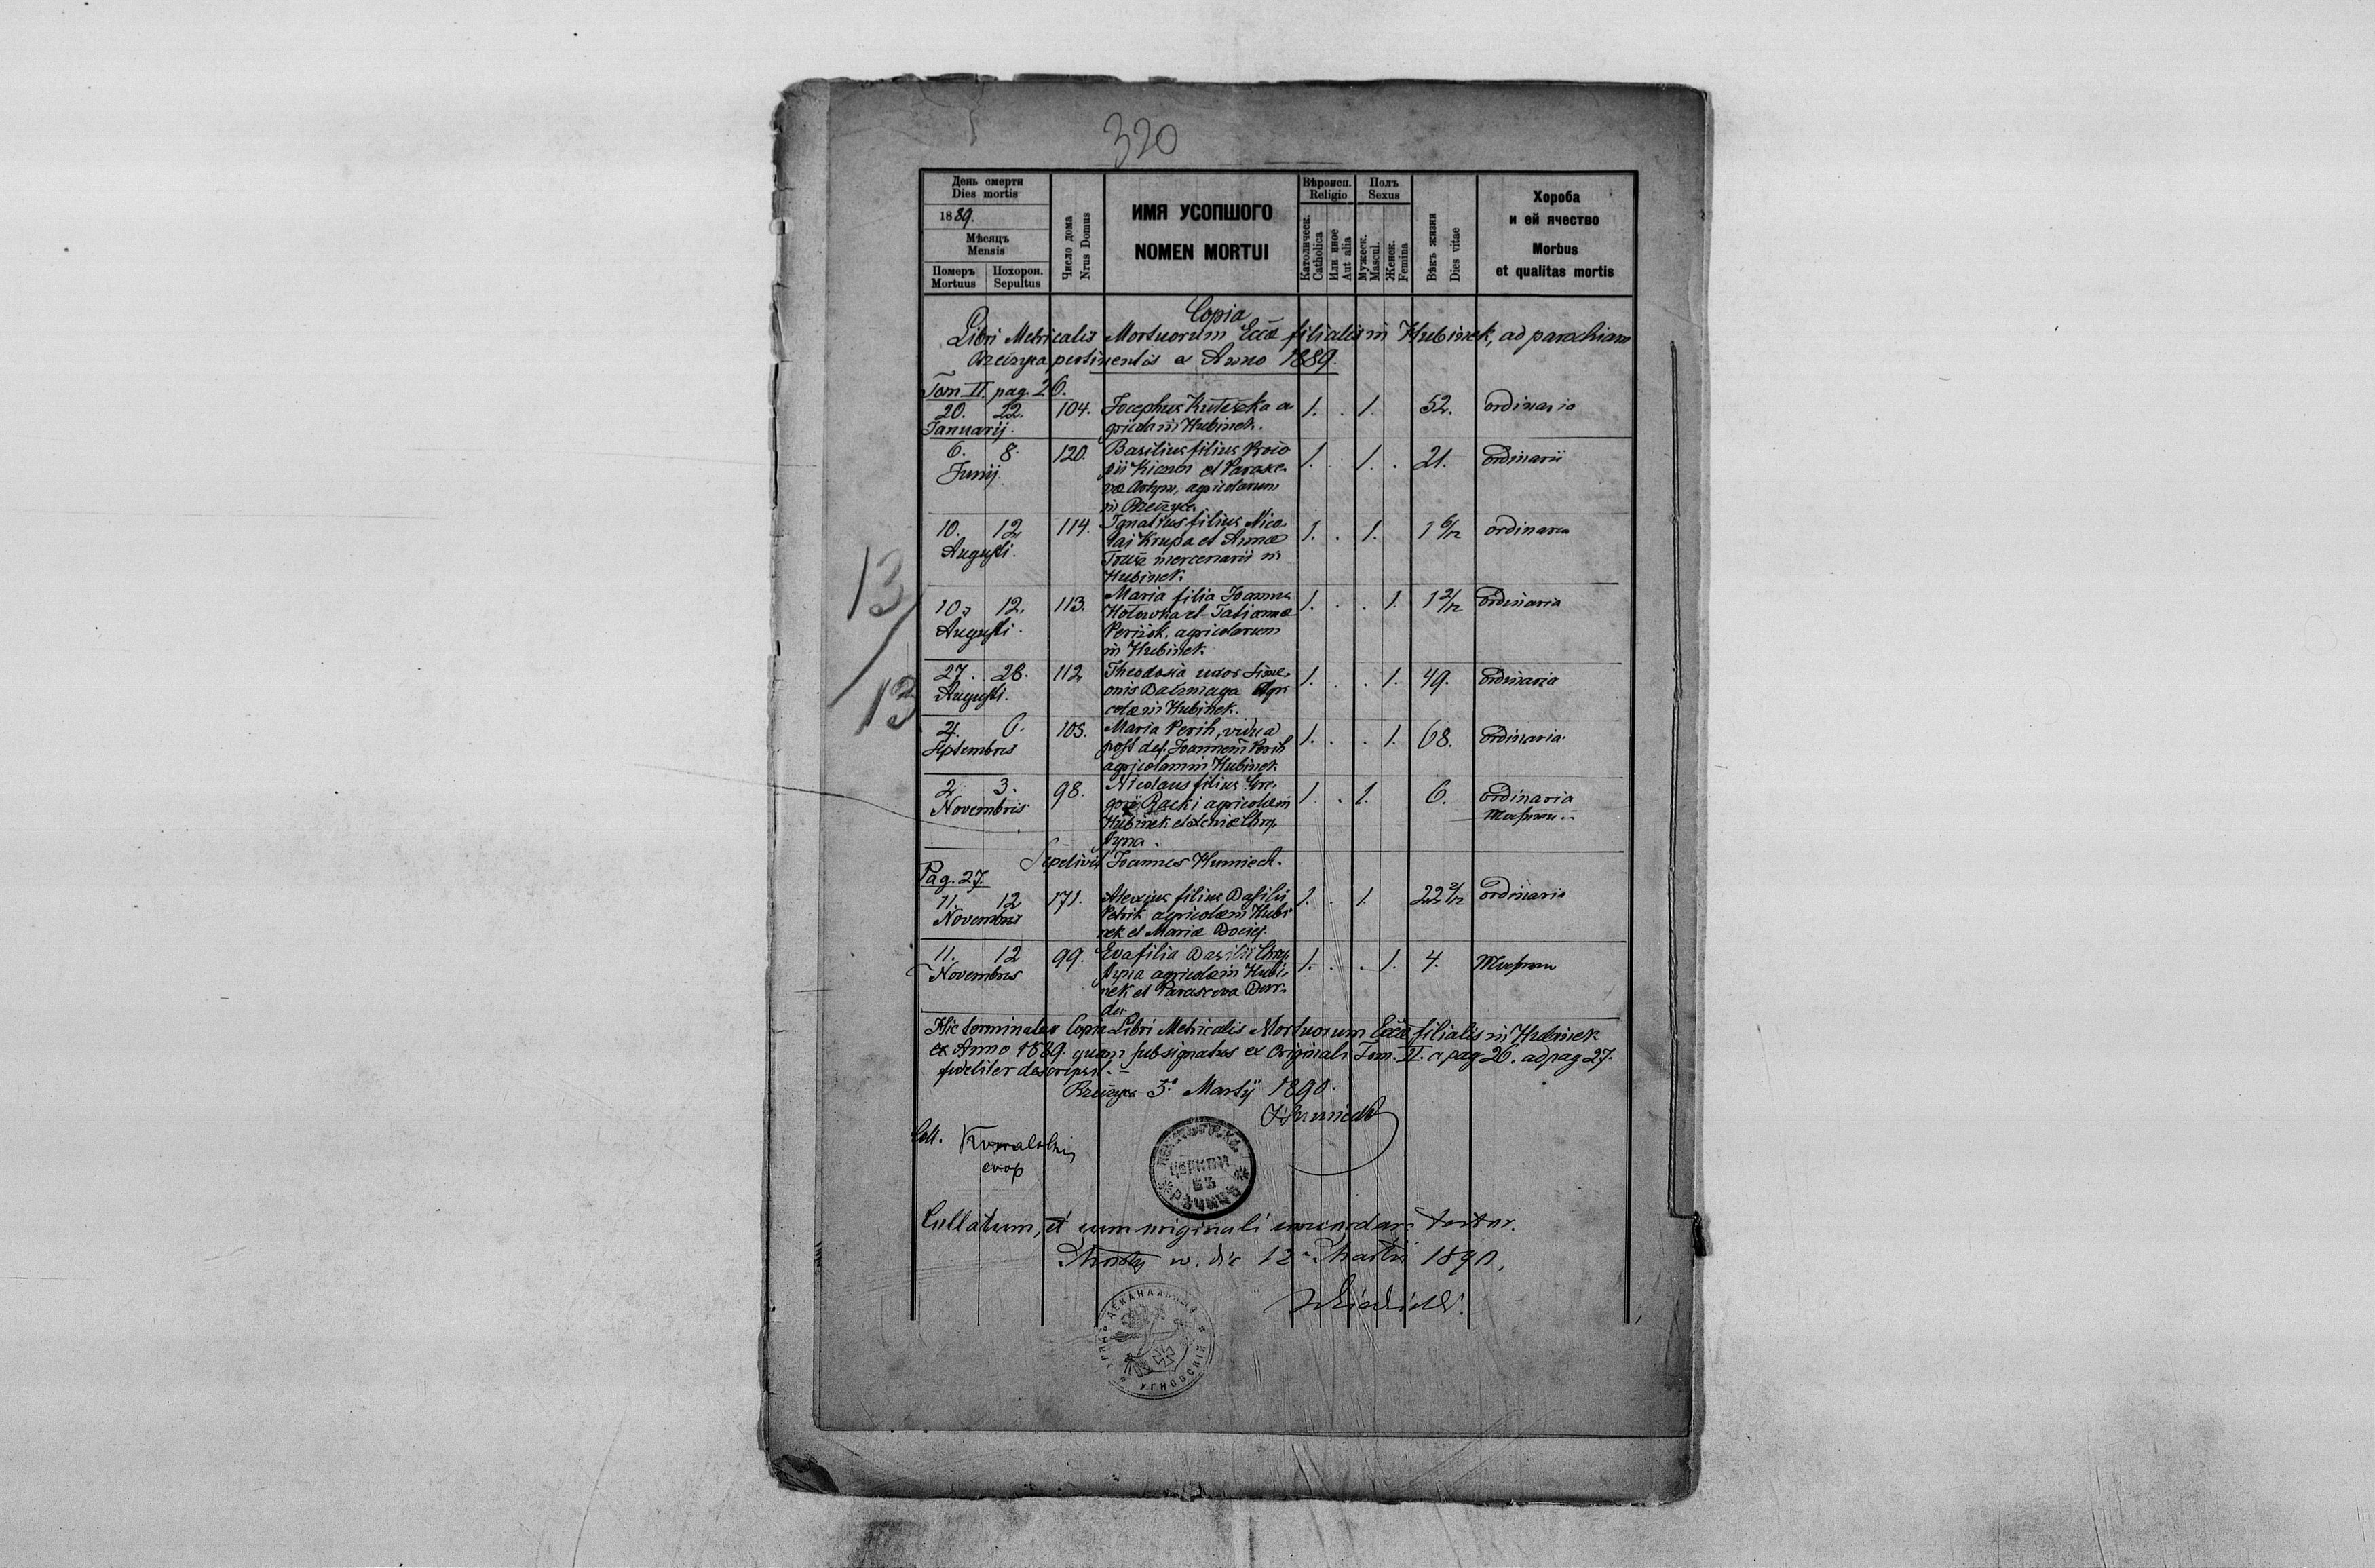 320
День смерти
Dies mortis
1889.
Мѣсяцъ
Mensis
Померъ Похорон.
Mortuus Sepultus
Число дома
Nrus Domus
ИМЯ УСОПШОГО
NOMEN MORTUI
Вѣроисп.
Religio
Католическ.
Catholica
Или иное
Aut alia
Полъ
Sexus
Мужеск.
Mascul.
Женск.
Femina
Вѣкъ жизни
Dies vitae
Хороба
и ей ячество
Morbus
et qualitas mortis
Copia
Libri Metricalis Mortuorum Eccae filialis in Hubinek, ad parochiam
Rzeczyca pertinentis a Anno 1889.
Tom II. pag. 26.
20. 22. 104. Josephus a- 1. . 1. 52. ordinaria
Januarij. gricola in Hubinek.
6. 8. 120. Basilius filius Proco 1. . 1. . 21. ordinarii
Junij. pii et Paraske-
vae agricolarum
in Rzeczyca
10. 12 114. Ignatius filius Nico- 1. . 1. 1 6/12 ordinaria
Augusti. lai Krupa et Annae
mercenarii in
Hubinek.
10. 12. 113. Maria filia Joannis 1. . . 1. 1 2/12 ordinaria
Augusti. Hołowka et Tatjannae
agricolarum
in Hubinek
27. 28. 112 Theodosia uxor Sime- 1. . . 1. 49. ordinaria
Augusti. onis Agri
colae in Hubinek.
4. 6. 105. Maria Perih, vidua 1. . . 1. 68. ordinaria.
Septembris post def. Joannem Perih
agricolam in Hubinek
2. 3. 98. Nicolaus filius Gre- 1. . 1. 6. ordinaria
Novembris gorii Racki agricolae in
Hubinek et
Sepelivit Joannes Humiecki.
Pag. 27.
11. 12 171. Alexius filius Basilii 1. . 1. 22 2/12 ordinaria
Novembris Petrik agricolae in Hubi
nek et Mariae
11. 12 99. Eva filia Basilii 1. . . 1. 4.
Novembris agricolae in Hubi-
nek et Parasceva
Hic terminatur Copia Libri Metricalis Mortuorum Eccae filialis in Hubinek
ex Anno 1889. quam subsignatus ex Originali Tom. II. a pag 26. ad pag 27.
fideliter descripsit.
Rzeczyca 5. Martij 1890.
Humiecki
Coll. Kowalski
coop
ЦЕРКВИ
ВЪ
Collatum, et cum originali concordare testor.
die 12 Martii 1890.
УГНОВСКІЙ
13/13